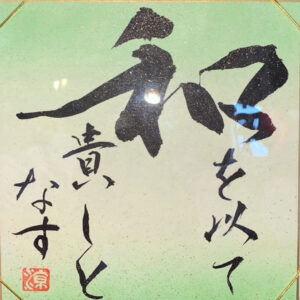 和を以て
貴しと
なす